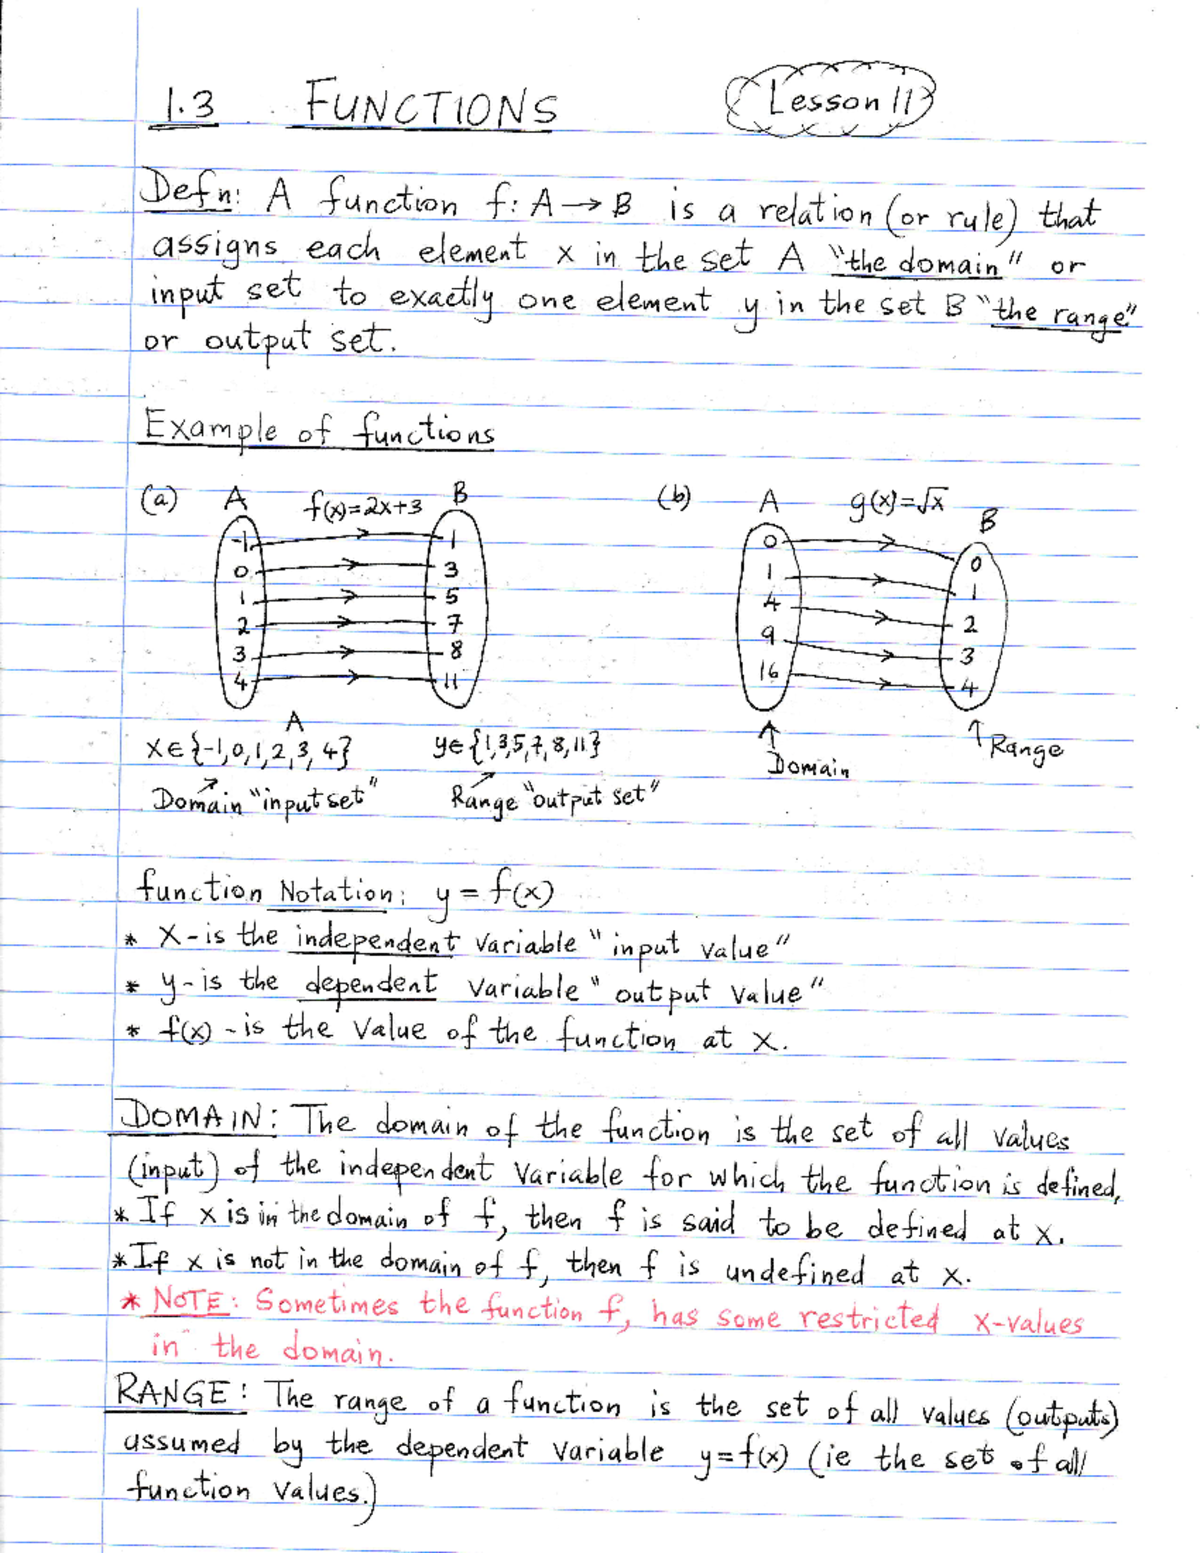 1.3 FUNCTIONS Lesson 11
Defn: A function f: A → B is a relation (or rule) that
assigns each element x in the set A "the domain" or
input set to exactly one element y in the set B "the range"
or output set.
Example of functions
(a) A f(x)=2x+3 B
-1 1
0 3
1 5
2 7
3 8
4 11
(b) A g(x)=√x B
0 0
1 1
4 2
9 3
16 4
A
x∈{-1,0,1,2,3,4} y∈{1,3,5,7,8,11}
Domain "input set" Range "output set"
Domain Range
function Notation: y = f(x)
* X-is the independent variable "input value"
* y-is the dependent variable "output value"
* f(x) -is the value of the function at x.
DOMAIN: The domain of the function is the set of all values
(input) of the independent variable for which the function is defined,
* If x is in the domain of f, then f is said to be defined at x.
* If x is not in the domain of f, then f is undefined at x.
* NOTE: Sometimes the function f, has some restricted x-values
in the domain.
RANGE: The range of a function is the set of all values (outputs)
assumed by the dependent variable y=f(x) (ie the set of all
function values.)